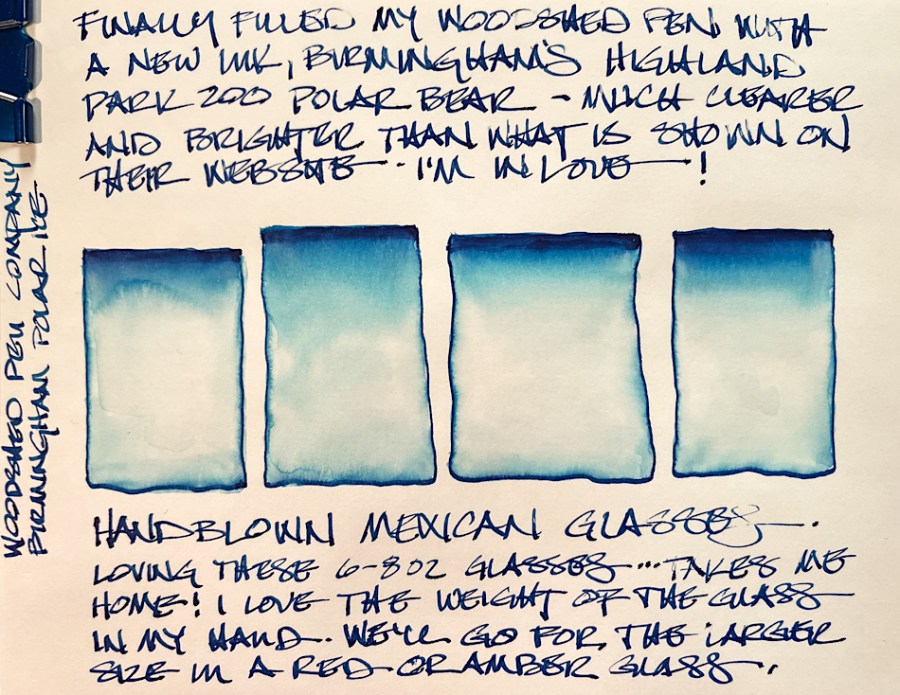 FINALLY FILLED MY WOODSHED PEN WITH
A NEW INK, BIRMINGHAM'S HIGHLAND
PARK 200 POLAR BEAR - MUCH CLEARER
AND BRIGHTER THAN WHAT IS SHOWN ON
THEIR WEBSITE - I'M IN LOVE!
WOODSHED PEN COMPANY
BIRMINGHAM POLAR ICE
HANDBLOWN MEXICAN GLASSES.
LOVING THESE 6-8OZ GLASSES...TAKES ME
HOME! I LOVE THE WEIGHT OF THE GLASS
IN MY HAND. WE'LL GO FOR THE LARGER
SIZE IN A RED OR AMBER GLASS.